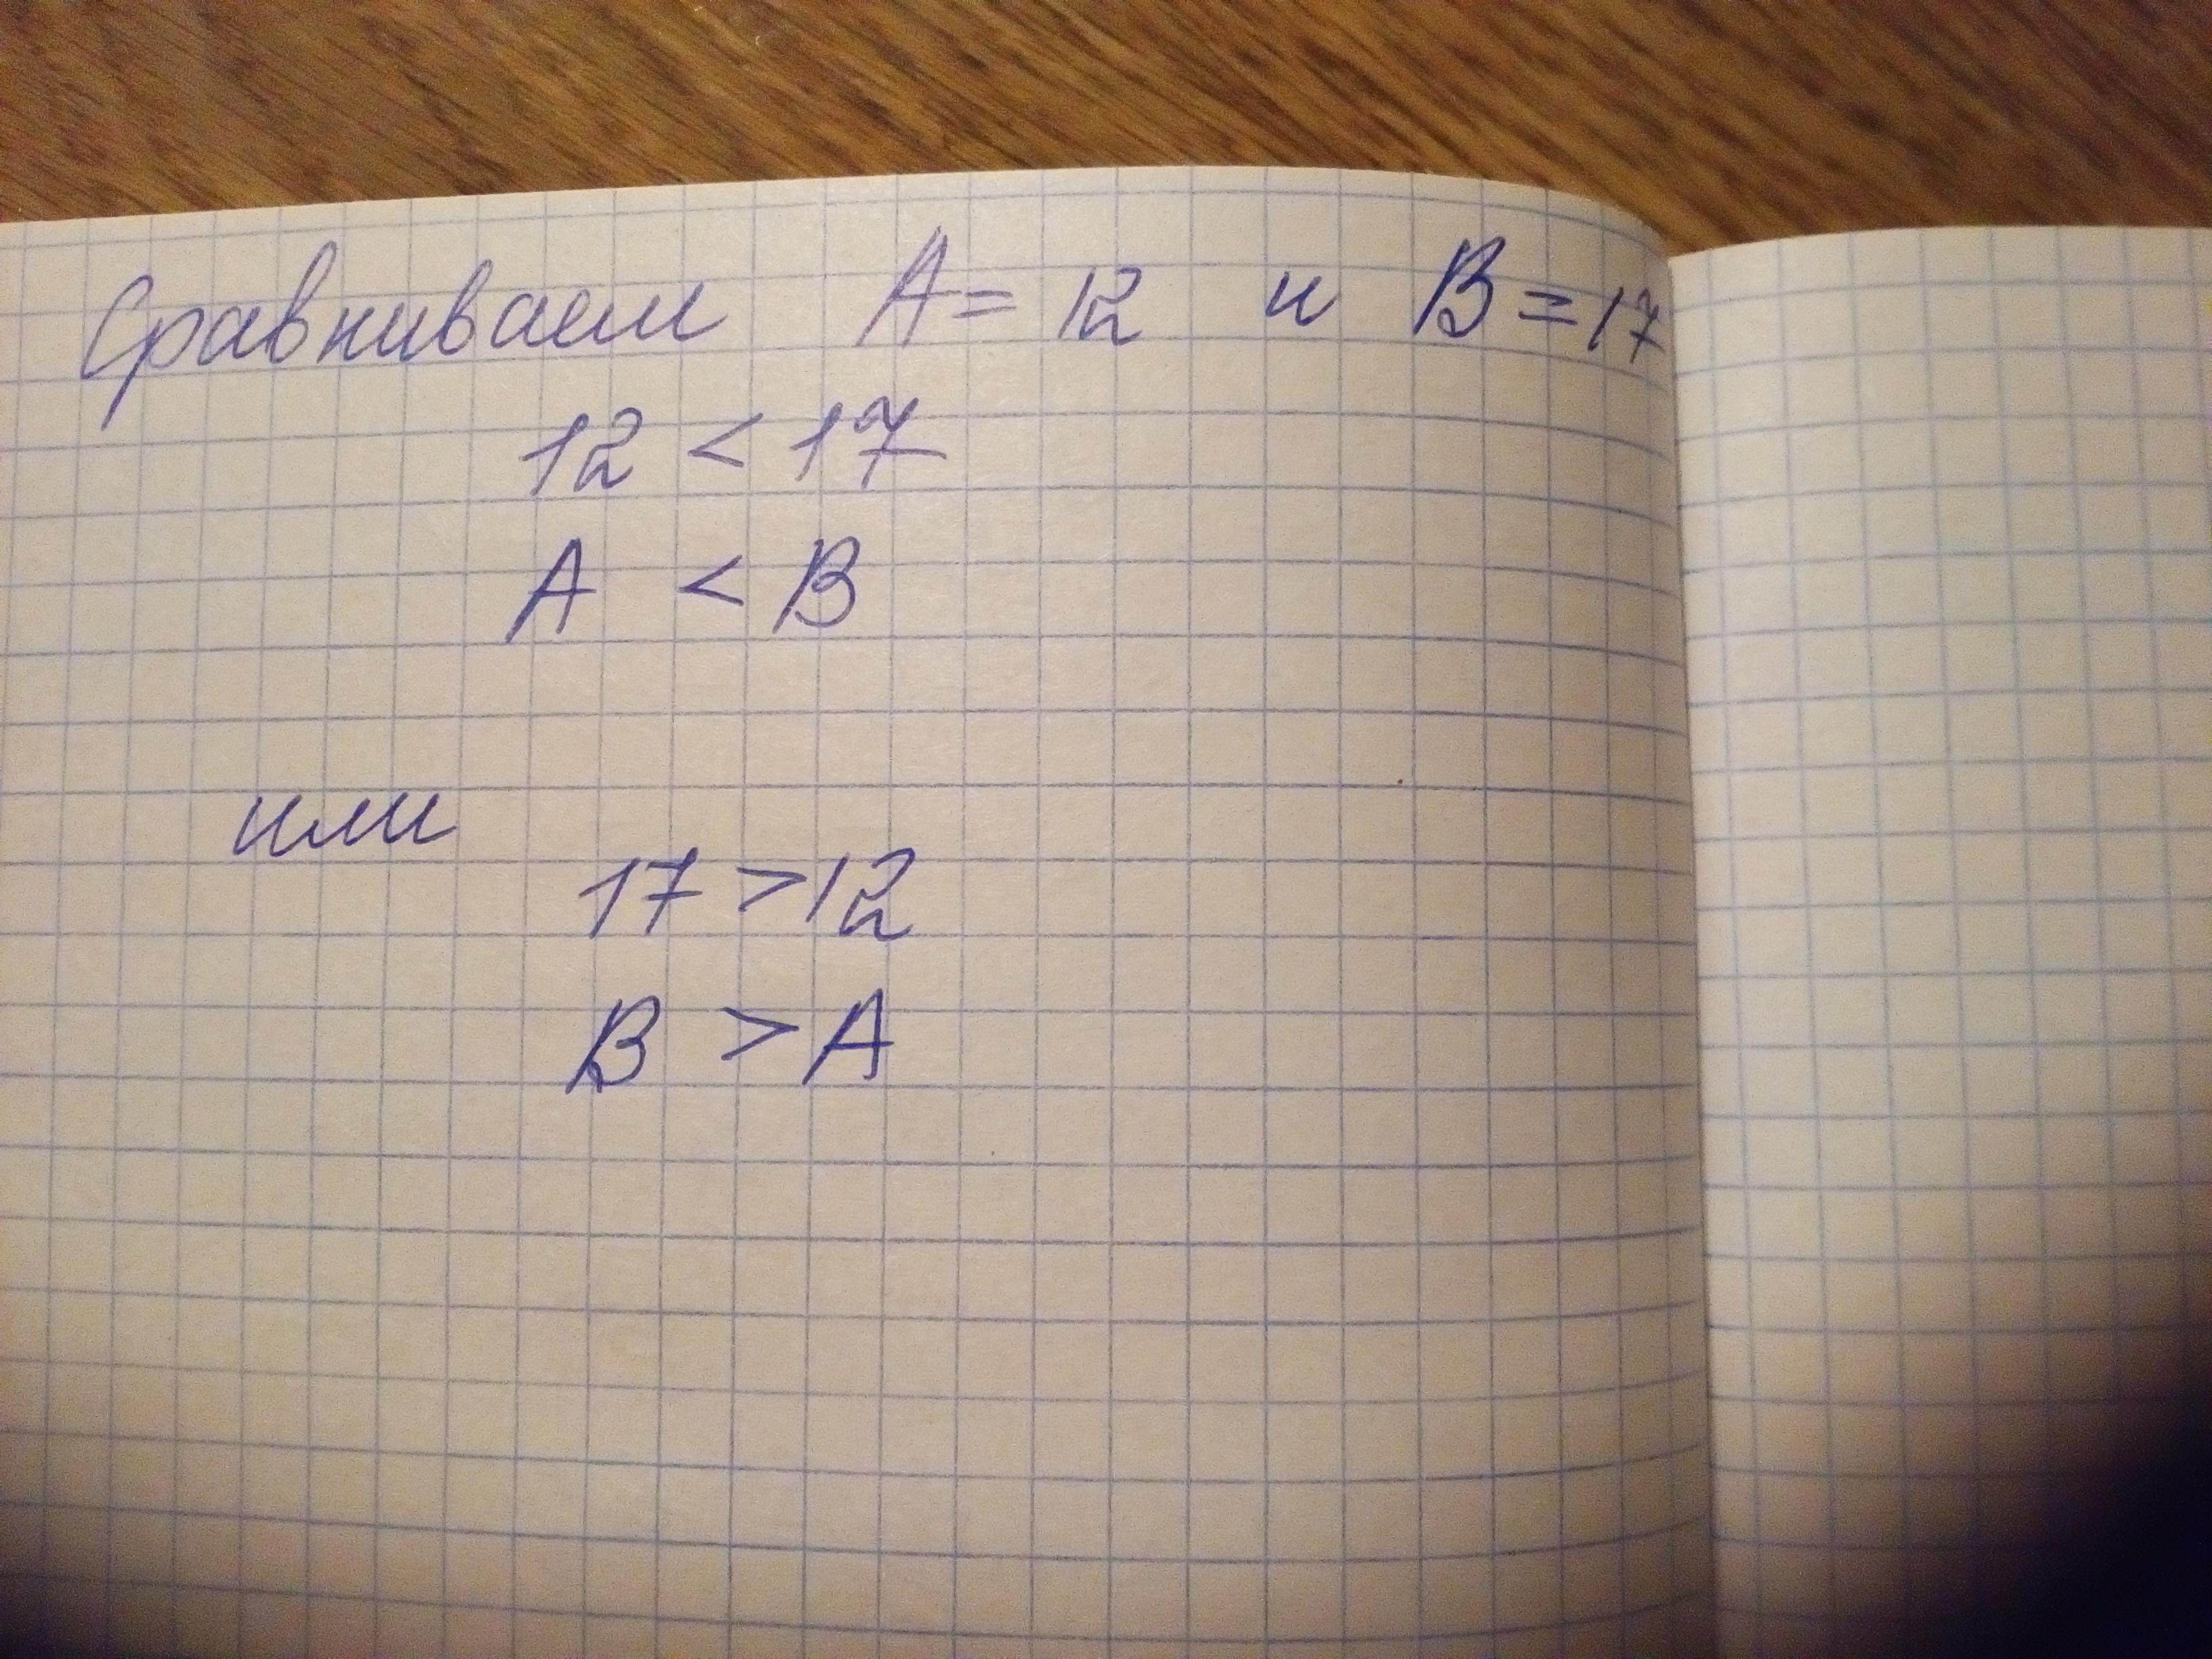 Сравниваем A = 12 и B = 17
12 < 17
A < B
или
17 > 12
B > A